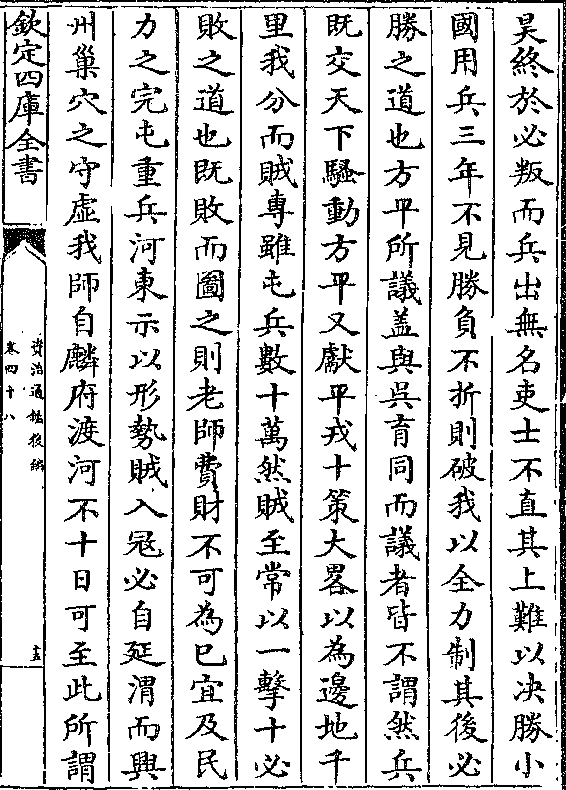 昊終於必叛而兵出無名吏士不直其上難以决勝小
國用兵三年不見勝負不折則破我以全力制其後必
勝之道也方平所議盖與吳育同而議者皆不謂然兵
既交天下騷動方平又獻平戎十策大畧以為邊地千
里我分而賊專雖屯兵數十萬然賊至常以一擊十必
敗之道也既敗而圖之則老師費財不可為已宜及民
力之完屯重兵河東示以形勢賊入冦必自延渭而興
州巢穴之守虛我師自麟府渡河不十日可至此所謂
欽定四庫全書
資治通鑑後編
卷四十八